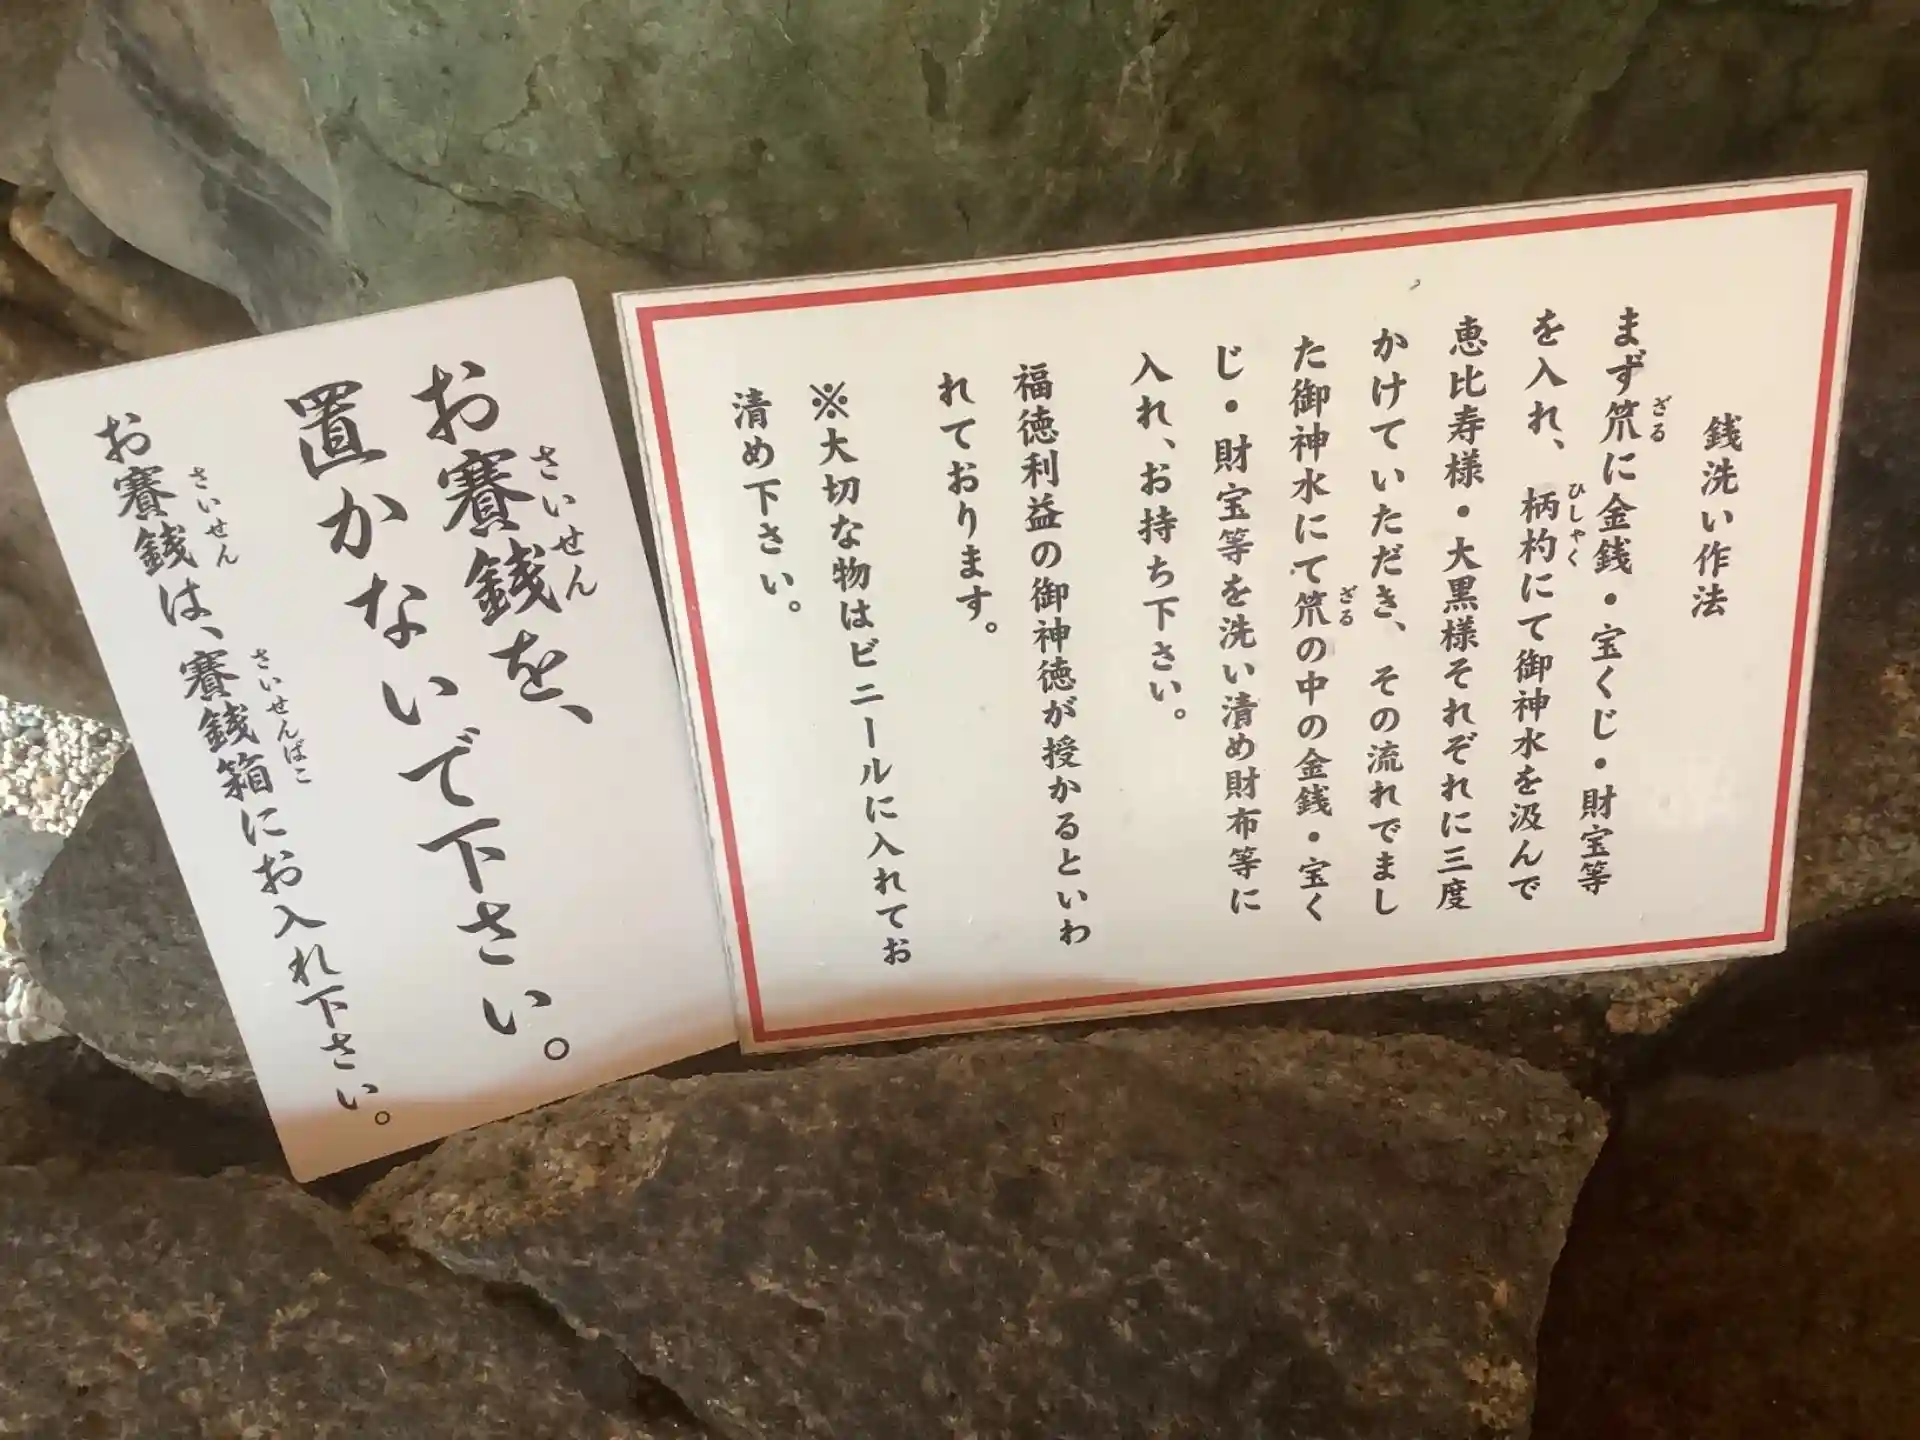 銭洗い作法
まず笊に金銭・宝くじ・財宝等
ざる
を入れ、柄杓にて御神水を汲んで
ひしゃく
恵比寿様・大黒様それぞれに三度
かけていただき、その流れでまし
た御神水にて笊の中の金銭・宝く
ざる
じ・財宝等を洗い清め財布等に
入れ、お持ち下さい。
福徳利益の御神徳が授かるといわ
れております。
※大切な物はビニールに入れてお
清め下さい。
お賽銭を、
さいせん
置かないで下さい。
お賽銭は、賽銭箱にお入れ下さい。
さいせん
さいせんばこ